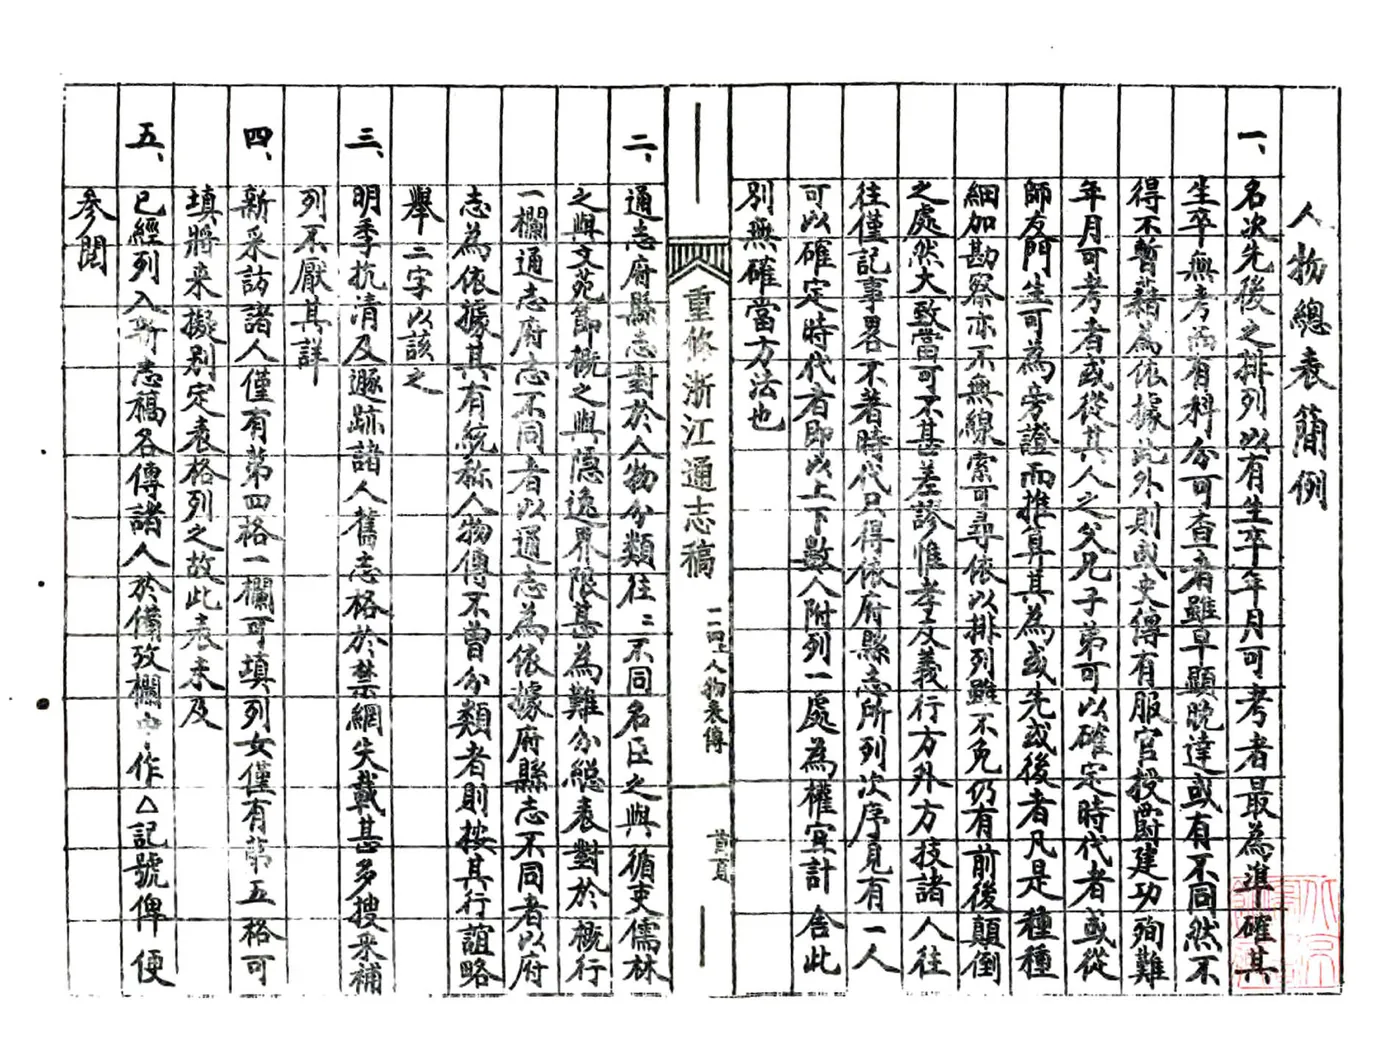 人物總表簡例
一、名次先後之排列以有生卒年月可考者最為準確其
生卒無考而有科分可查者雖早顯晚達或有不同然不
得不暫藉為依據此外則或史傳有服官授爵建功殉難
年月可考者或從其人之父兄子弟可以確定時代者或從
師友門生可為旁證而推算其為或先或後者凡是種種
細加勘察亦不無線索可尋依以排列雖不免仍有前後顛倒
之處然大致當可不甚差謬惟孝友義行方外方技諸人往
往僅記事畧不著時代只得依府縣志所列次序見有一人
可以確定時代者即以上下數人附列一處為權宜計舍此
別無確當方法也
重修浙江通志稿
二四上人物表傳
首頁
二、通志府縣志對於人物分類往〻不同名臣之與循吏儒林
之與文苑節概之與隱逸界限甚為難分総表對於概行
一欄通志府志不同者以通志為依據府縣志不同者以府
志為依據其有統称人物傳不曾分類者則按其行誼略
舉二字以該之
三、明季抗清及遯跡諸人舊志格於禁網失載甚多搜采補
列不厭其詳
四、新采訪諸人僅有第四格一欄可填列女僅有第五格可
填將来擬別定表格列之故此表未及
五、已經列入新志稿各傳諸人於備攷欄中作△記號俾便
參閱